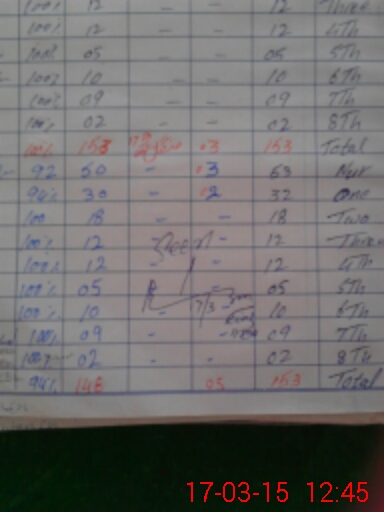 100% 12 12 Three
100% 12 - - 12 4Th
100% 05 - - 05 5Th
100% 10 - - 10 6Th
100% 09 - - 09 7Th
100% 02 - - 02 8Th
100% 153 03 153 Total
92 50 - 3 53 Nur
94% 30 - 2 32 One
100 18 - - 18 Two
100% 12 Seen - 12 Three
100% 12 - - 12 4Th
100% 05 - 05 5Th
100% 10 - 17/3 10 6Th
100% 09 - - 09 7Th
100% 02 - - 02 8Th
94% 148 05 153 Total
17-03-15 12:45